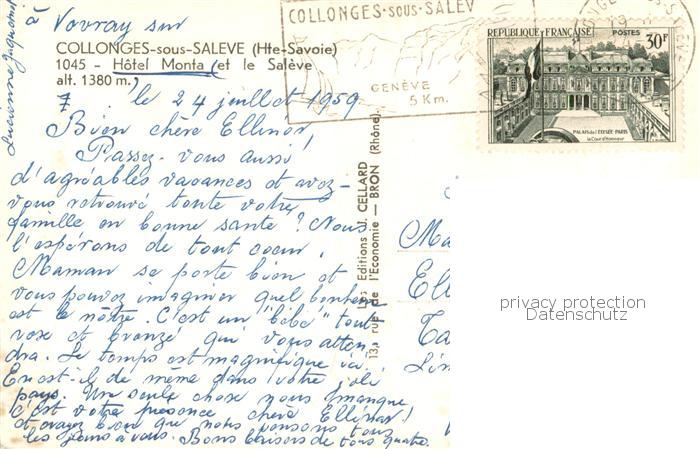 à Vovray sur
COLLONGES-sous-SALEVE (Hte-Savoie)
1045 - Hôtel Monta (et le Salève
alt. 1380 m.)
COLLONGES-SOUS-SALEV
GENÈVE
5 Km.
REPUBLIQUE FRANÇAISE POSTES
30F
PALAIS de l'ELYSÉE PARIS
la Cour d'Honneur
le 24 juillet 1959.
Bien chère Ellinor,
Passez-vous aussi
d'agréables vacances et avez-
vous retrouvé toute votre
famille en bonne santé ? Nous
l'espérons de tout coeur.
Maman se porte bien et
vous pouvez imaginer quel bonheur
est le nôtre. C'est un "bébé" tout
rose et bronzé qui vous atten
dra. Le temps est magnifique ici.
En est-il de même dans votre joli
pays. Une seule chose nous manque
c'est votre présence chère Ellinor!
et croyez bien que nous pensons tous
les jours à vous. Bons baisers de tous quatre.
Lucienne
Les Editions J. CELLARD
13, rue de l'Economie — BRON (Rhône)
Ma
Ell
privacy protection
Datenschutz